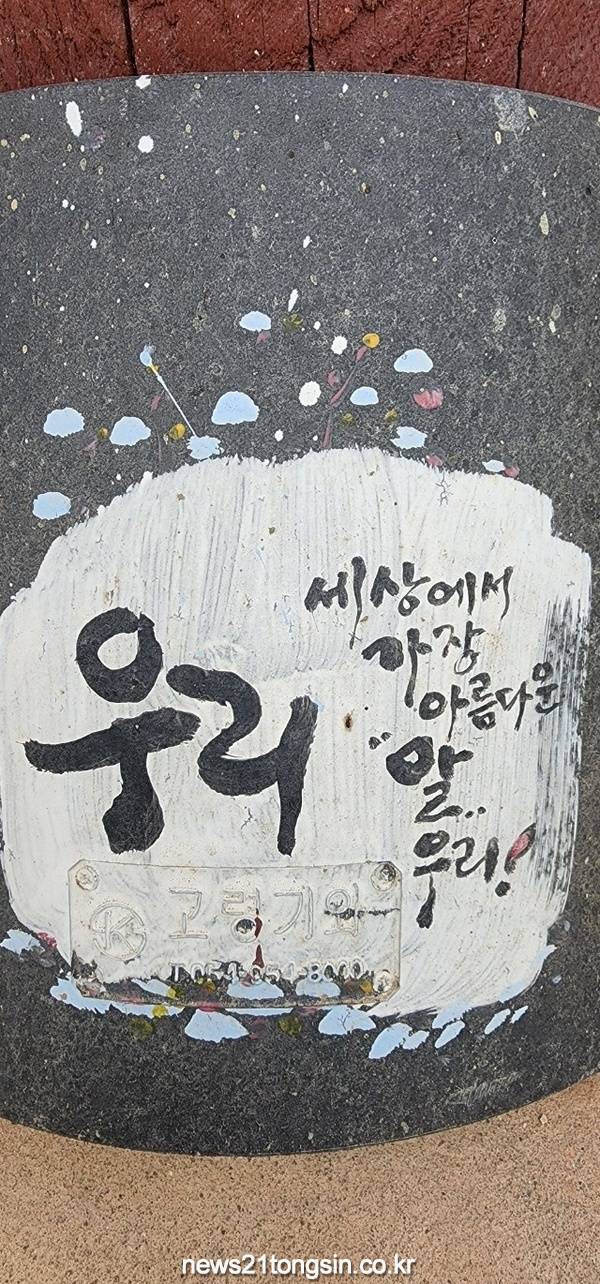 우리
세상에서
가장
아름다운
"말..
우리!
고령기와
news21tongsin.co.kr